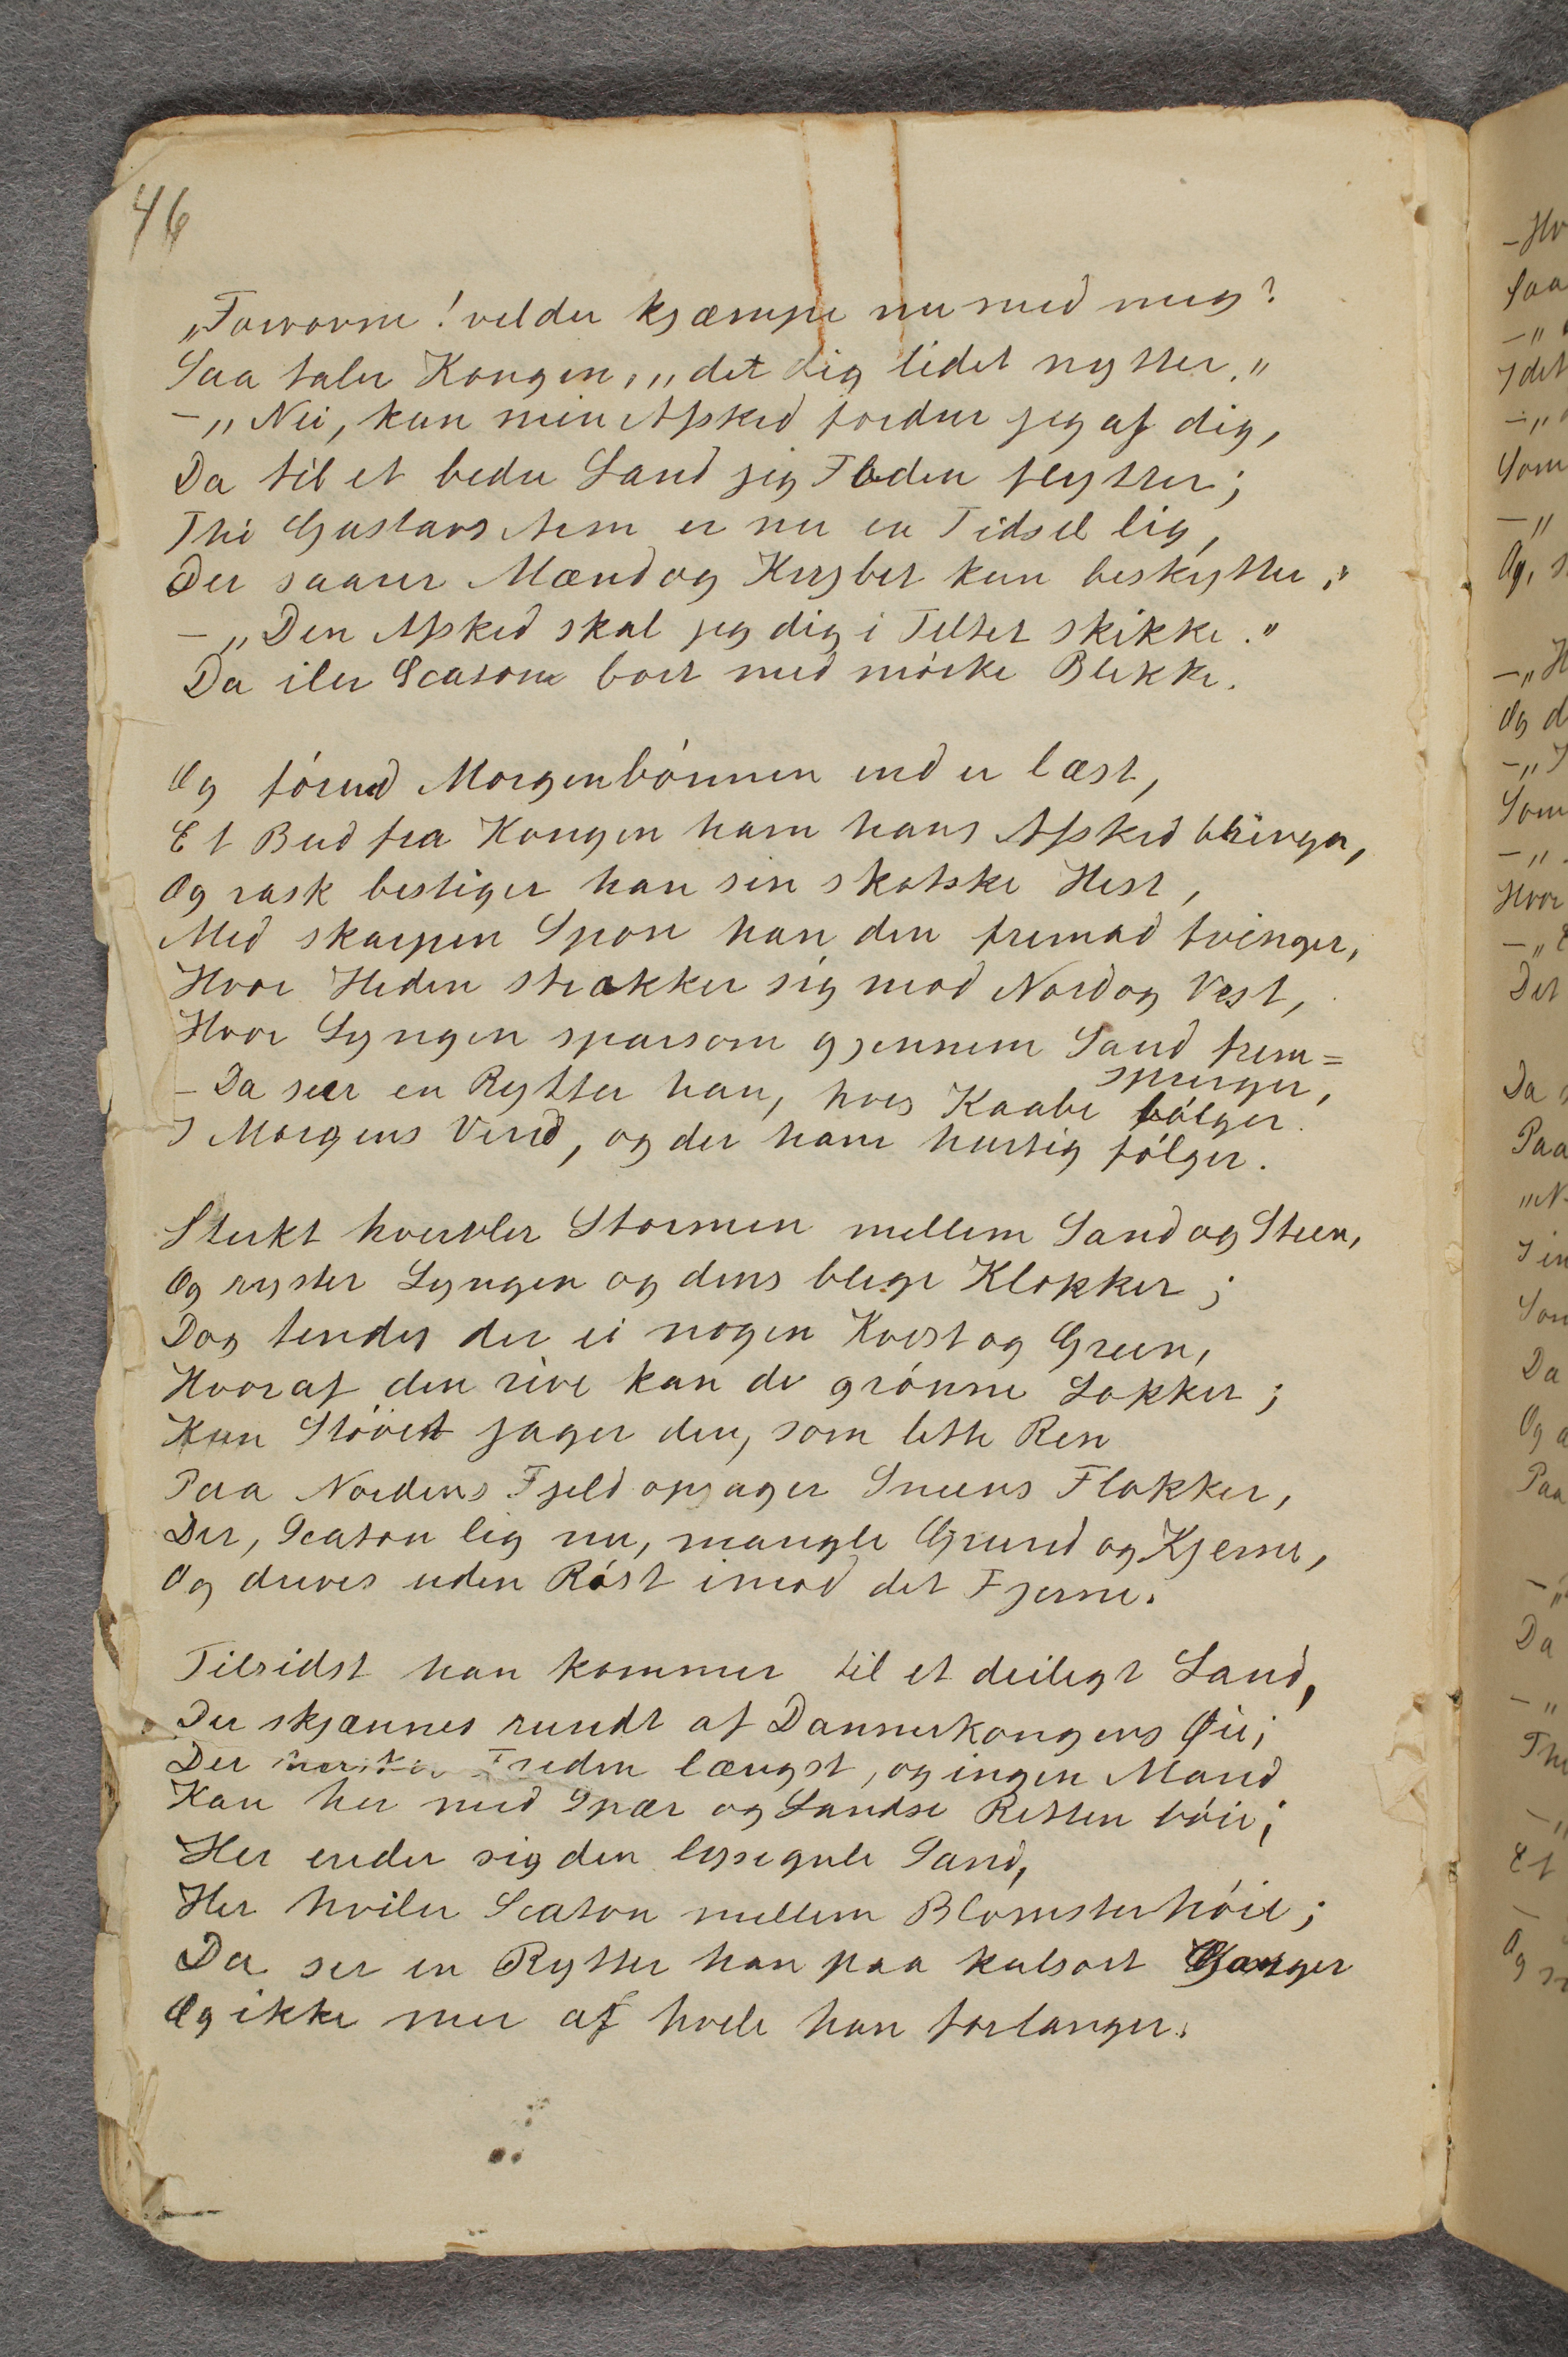 46
„Forvovne! vil du kjæmpe nu med mig?
Saa taler Kongen, „det dig lidet nytter."
– „Nei, kun min Afsked fordrer jeg af dig,
Da til et bedre Land jeg Foden flytter;
Thi Gustavs Arm er nu en Tidsel lig,
Der saarer Mænd og Krybet kun beskytter,"
– „Den Afsked skal jeg dig i Teltet skikke."
Da iler Seaton bort med mörke Blikke.
Og förend Morgenbönnen end er læst,
Et Bud fra Kongen ham hans Afsked bringer,
Og rask bestiger han sin skotske Hest,
Med skarpen Spore han den fremad tvinger,
Hvor Heden strækker sig mod Nord og Vest,
Hvor Lyngen sparsom gjennem Sand frem=
springer,
– Da seer en Rytter han, hvis Kaabe bölger
I Morgens Vind, og der ham hurtig fölger.
Sterkt hvirvler Stormen mellem Sand og Steen,
Og ryster Lyngen og dens blege Klokker;
Dog findes der ei nogen Kvist og Green,
Hvoraf den rive kan de grönne Lokker;
Kun Stövet jager den, som lette Ren
Paa Nordens Fjeld opjager Sneens Flokker,
Der, Seaton lig nu, mangle Grund og Kjerne,
Og drives uden Röst imod det Fjerne.
Tilsidst han kommer til et deiligt Land,
Der skjænnes rundt af Dannerkongens Öie;
Der Freden længst, og ingen Mand
Kan her med Spær og Landse Retten böie;
Her ender sig den lysegule Sand,
Her hviler Seaton mellem Blomsterhöie;
Da ser en Rytter han paa kulsort Ganger
Og ikke mer af hvile han forlanger.
–Hv
Saa
– „
I det
– „
Som
– „
Og, s
– „H
Og d
– „I
Som
– „
Hvor
– „E
Det
Da
Paa
„N
I in
Som
Da
Og a
Paa
– „
Da
– „
Th
– „
Et
Og